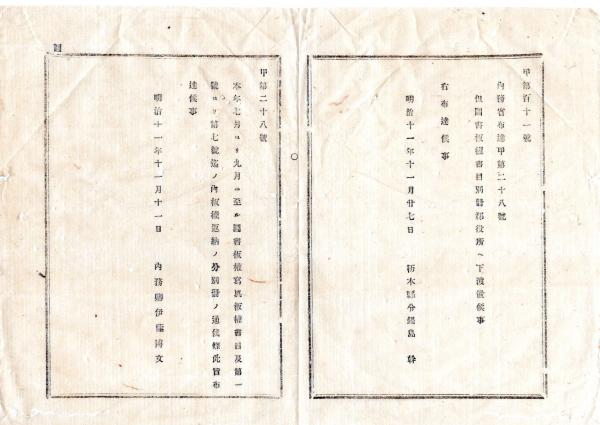 甲第百十一號
內務省布達甲第二十八號
但圖書板權書目別冊郡役所ヘ下渡置候事
右布達候事
明治十一年十一月廿七日
栃木縣令鍋島 幹
甲第二十八號
本年七月ヨリ九月ニ至ル圖書板權寫眞板權書目及第一
號ヨリ第七號迄ノ內板權返納ノ分別冊ノ通候條此旨布
達候事
明治十一年十一月十一日
內務卿伊藤博文